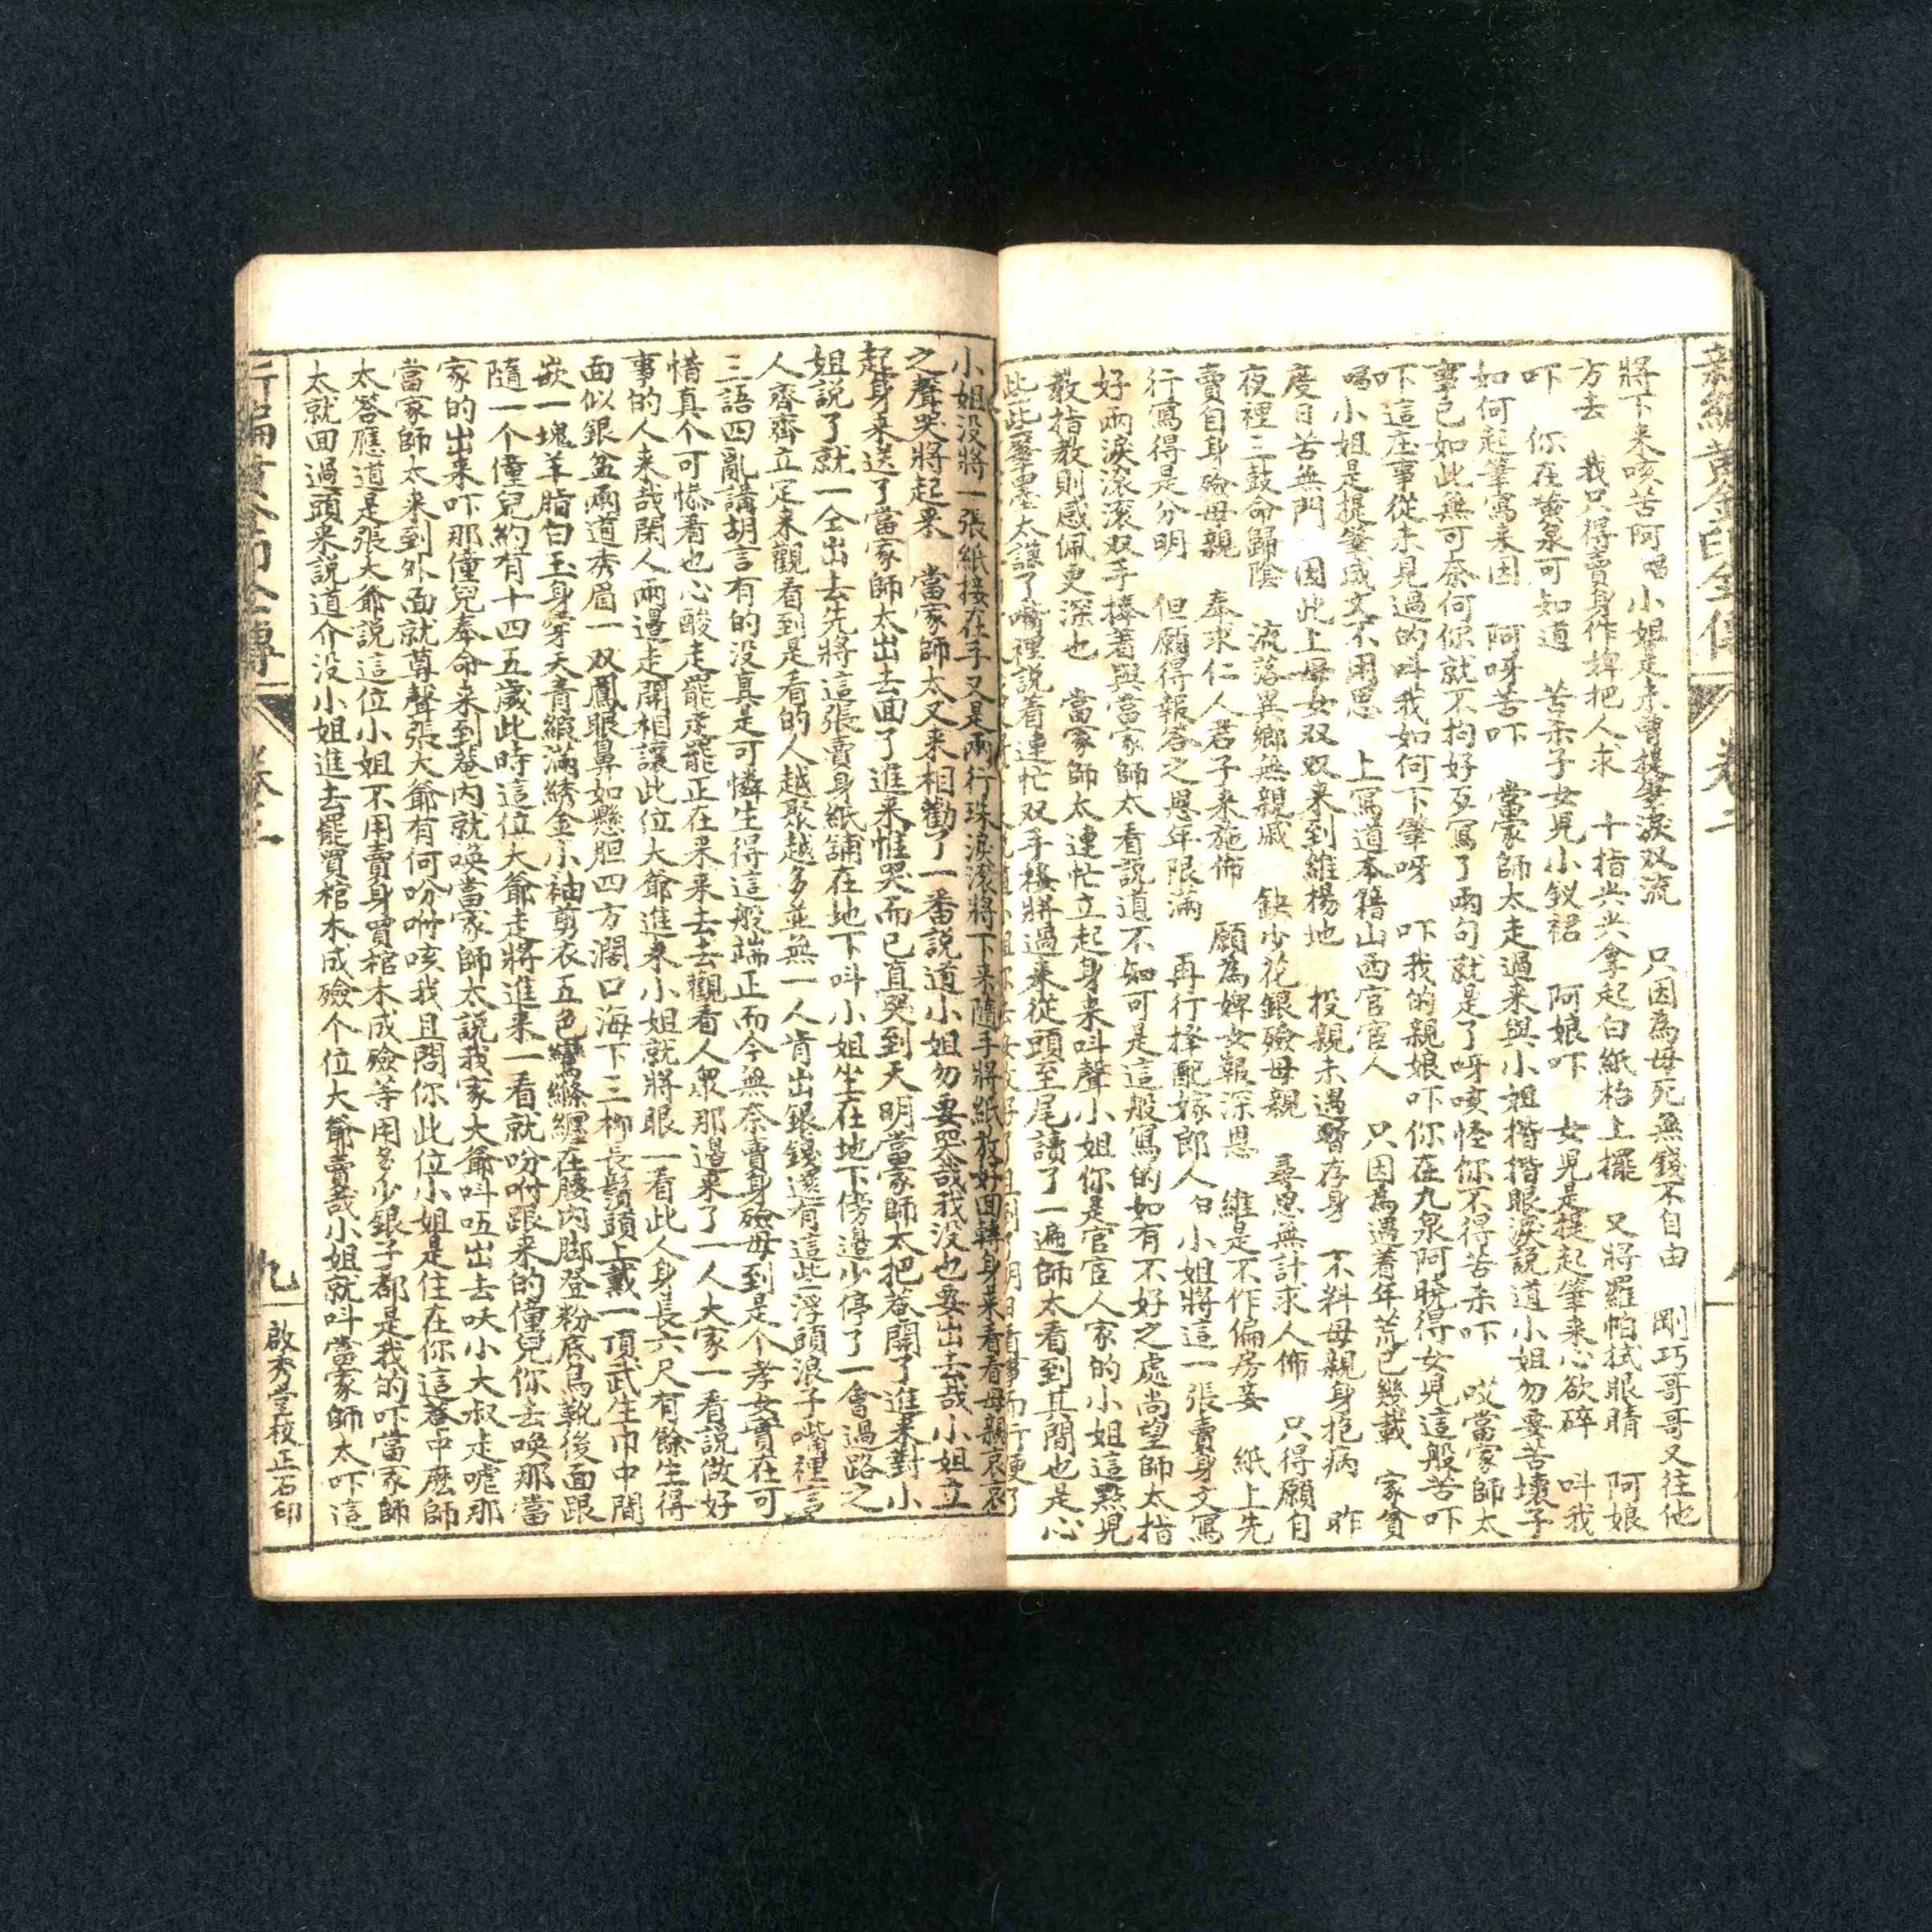 新編黃金印全傳 卷二 八
將下來咳苦阿唱 小姐是未曾提筆淚双流 只因為母死無錢不自由 剛巧哥哥又往他
方去 我只得賣身作婢把人求 十指尖尖拿起白紙枱上擺 又將羅帕拭眼睛 阿娘
吓 你在黃泉可知道 苦杀子女兒小釵裙 阿娘吓 女兒是提起筆來心欲碎 呌我
如何起筆寫來因 阿呀苦吓 當家師太走過來與小姐揩揩眼淚說道小姐勿要苦壞子
事已如此無可奈何你就不拘好歹寫了兩句就是了呀咳怪你不得苦杀吓 哎當家師太
吓這庄事從未見過的呌我如何下筆呀 吓我的親娘吓你在九泉阿曉得女兒這般苦吓
唱小姐是提筆成文不用思 上寫道本籍山西官宦人 只因為遇着年荒已幾載 家貧
度日苦無門 因此上母女双双來到維楊地 投親未遇暫存身 不料母親身抱病 昨
夜裡三鼓命歸陰 流落異鄉無親戚 缺少花銀殮母親 尋思無計求人佈 只得願自
賣自身殮母親 奉求仁人君子來施佈 願為婢女報深恩 維是不作偏房妾 紙上先
行寫得是分明 但願得報答之恩年限滿 再行擇配嫁郎人白 小姐將這一張賣身文寫
好兩淚滾滾双手捧着與當家師太看說道不知可是這般寫的如有不好之處尚望師太指
教指教則感佩更深也 當家師太連忙立起身來呌聲小姐你是官宦人家的小姐這點兒
些些筆墨太謙了嘴裡說着連忙双手接將過來從頭至尾讀了一遍師太看到其間也是心
小姐没將一張紙接在手又是兩行珠淚滾將下來隨手將紙放好回轉身來看看母親哀哀
之聲哭將起來 當家師太又來相勸了一番說道小姐勿要哭哉我没也要出去哉小姐立
起身來送了當家師太出去回了進來惟哭而已直哭到天明當家師太把菴門開了進來對小
姐說了就一仝出去先將這張賣身紙舖在地下呌小姐坐在地下傍邉少停了一會過路之
人齊齊立定來觀看到是看的人越聚越多並無一人肯出銀錢還有這些浮頭浪子嘴裡言
三語四亂講胡言有的没真是可憐生得這般端正而今無奈賣身殮母到是个孝女實在可
惜真个可慘看也心酸走罷走罷正在来来去去觀看人眾那邉来了一人大家一看說做好
事的人来哉閑人兩邉走開相讓此位大爺進来小姐就將眼一看此人身長六尺有餘生得
面似銀盆兩道秀眉一双鳳眼鼻如懸胆四方濶口海下三柳長鬚頭上戴一頂武生巾中間
嵌一塊羊脂白玉身穿天青緞滿綉金小袖剪衣五色鸞縧纒在腰内脚登粉底烏靴後面跟
隨一个僮兒約有十四五歲此時這位大爺走將進来一看就吩咐跟来的僮兒你去喚那當
家的出来吓那僮兒奉命来到菴内就喚當家師太說我家大爺呌㕶出去㕭小大叔走嘘那
當家師太来到外面就尊聲張大爺有何吩咐咳我且問你此位小姐是住在你這菴中麽師
太答應道是張大爺說這位小姐不用賣身買棺木成殮等用多少銀子都是我的吓當家師
太就回過頭来說道介没小姐進去罷買棺木成殮个位大爺賣哉小姐就呌當家師太吓這
卷二 九 啟秀堂校正石印